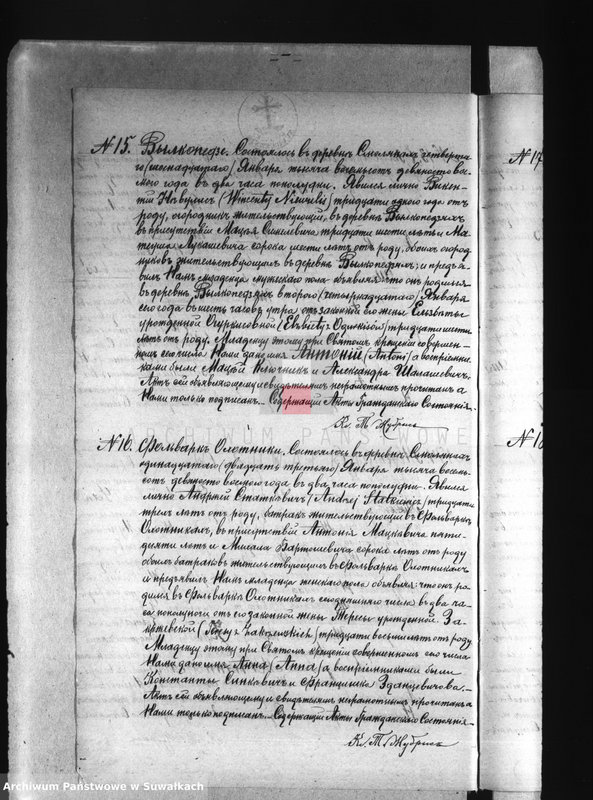 № 15. Вылкопедзе. Состоялось въ деревнѣ Смолянахъ четвертаго
(шестнадцатаго) Января тысяча восемьсотъ девяносто восьмого
года въ два часа пополудни. Явился лично Викентій
(Wincenty) тридцати одного года отъ
роду, огородникъ жительствующій въ деревнѣ Вылкопедзяхъ
въ присутствіи Мацѣя тридцати шести лѣтъ и Матеуша
Лукашевича сорока шести лѣтъ отъ роду, обоихъ огородниковъ
жительствующихъ въ деревнѣ Вылкопедзяхъ, и предъявилъ
Намъ младенца мужескаго пола объявляя что онъ родился
въ деревнѣ Вылкопедзяхъ второго (четырнадцатаго) Января
сего года въ шесть часовъ утра отъ законной его жены Елизбѣты
урожденной (Elżbiety z) тридцати шести
лѣтъ отъ роду. Младенцу этому при Святомъ крещеніи совершенномъ
сего числа Нами дано имя Антоній (Antoni) а воспріемниками
были Мацѣй Ключникъ и Александра
Актъ сей объявляющему и свидѣтелямъ неграмотнымъ прочитанъ а
Нами только подписанъ. Содержащій Акты Гражданскаго Состоянія.
Кс. Т.
ARCHIWUM PAŃSTWOWE
№ 16. Фольваркъ Охотники. Состоялось въ деревнѣ Смолянахъ
одинадцатаго (двадцать третьяго) Января тысяча восемьсотъ
девяносто восьмого года въ два часа пополудни. Явился
лично Андрей Статкевичъ (Andrzej Statkiewicz) тридцати
трехъ лѣтъ отъ роду, батракъ жительствующій въ фольваркѣ
Охотникахъ, въ присутствіи Антонія Мацкевича пятидесяти
лѣтъ и Михала Бартошевича сорока лѣтъ отъ роду
обоихъ батраковъ жительствующихъ въ фольваркѣ Охотникахъ
и предъявилъ Намъ младенца женскаго пола объявляя: что онъ родился
въ фольваркѣ Охотникахъ сегодняшняго числа въ два часа
пополуночи отъ его законной жены Тересы урожденной Закржевской
(Teresy z Zakrzewskich) тридцати восьми лѣтъ отъ роду
Младенцу этому при Святомъ крещеніи совершенномъ сего числа
Нами дано имя Анна (Anna) а воспріемниками были
Константы Синкевичъ и Францишка Зданцевичова.
Актъ сей объявляющему и свидѣтелямъ неграмотнымъ прочитанъ а
Нами только подписанъ. Содержащій Акты Гражданскаго Состоянія.
Кс. Т.
№ 17
Archiwum Państwowe w Suwałkach